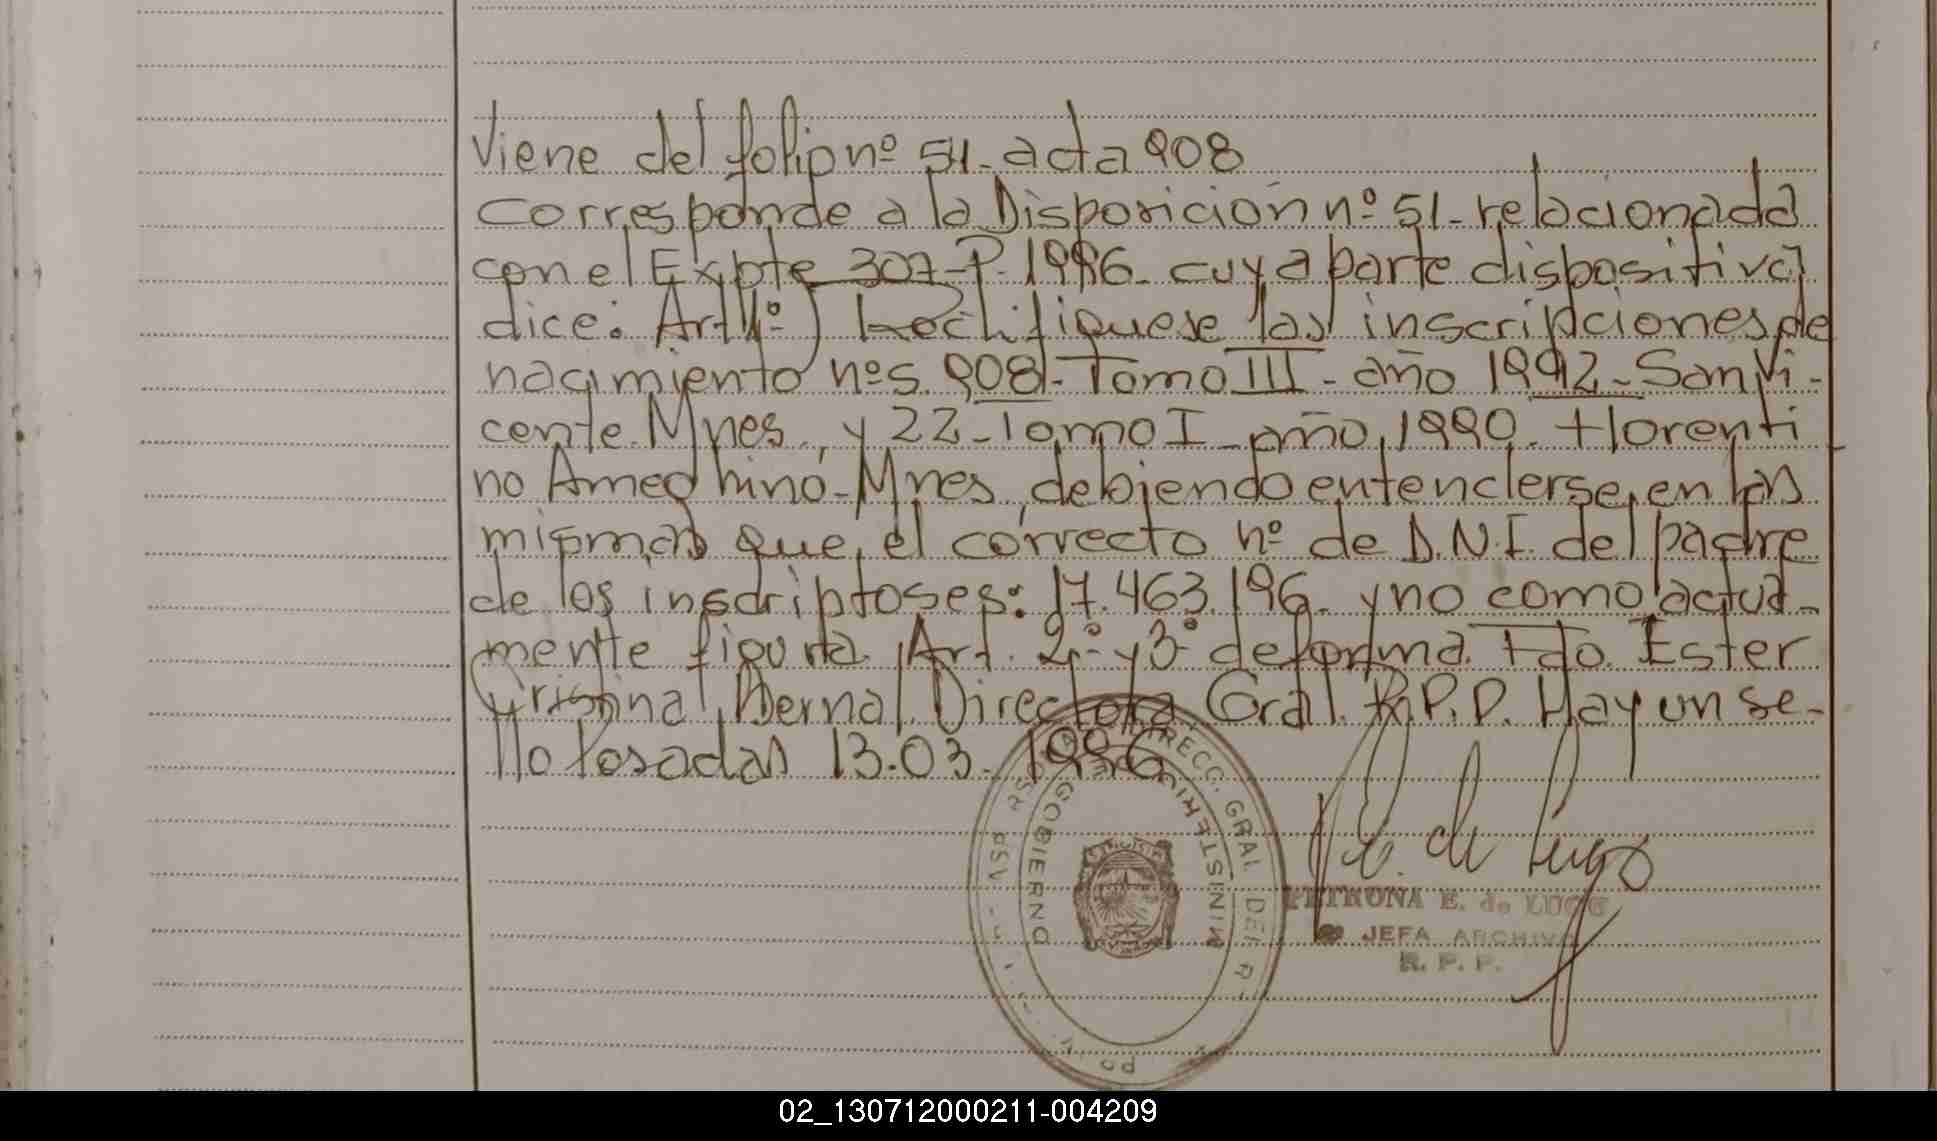 Viene del folio nº 54- acta 908
Corresponde a la Disposición nº 51- relacionada
con el Expte 307-P-1996- cuya parte dispositiva
dice: Art 1º) Rectifiquese las inscripciones de
nacimiento nºs 908- Tomo III- año 1992- San Vi-
cente Mnes, y 22- Tomo I- año 1990. Florenti
no Ameghino- Mnes, debiendo entenderse, en las
mismas que, el correcto nº de D.N.I. del padre
de los inscriptos es: 17.463.196- y no como actual-
mente figura. Art. 2º y 3º de forma. Fdo. Ester
Cristina Bernal Directora Gral. R.P.P. Hay un se-
llo Posadas 13.03.1996
DIRECC. GRAL DEL R
MINISTERIO
GOBIERNO
PETRONA E. de LUGO
JEFA ARCHIVO
R. P. P.